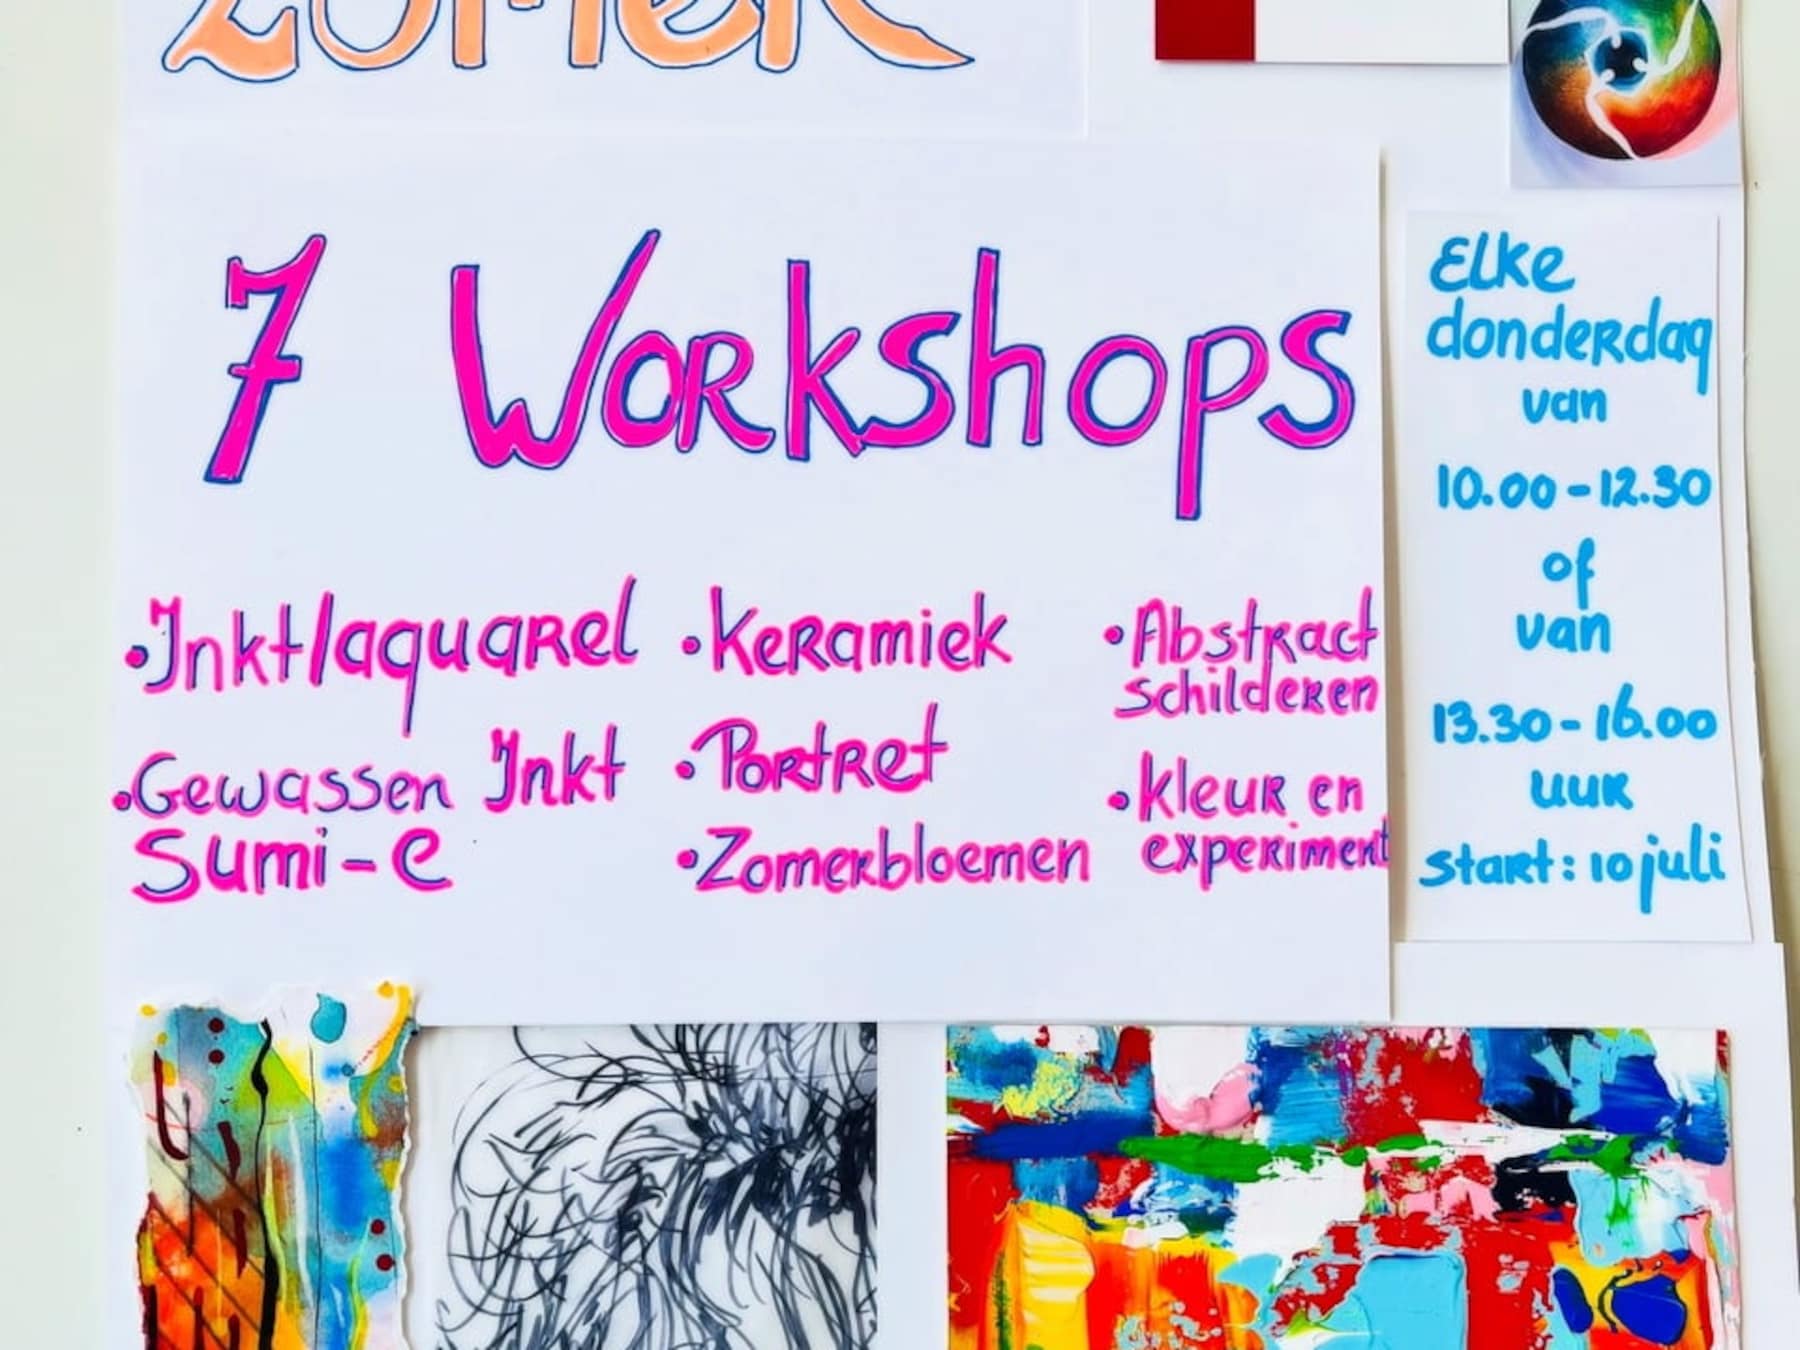 ZOMER
7 Workshops
• Inkt/aquarel
• Gewassen Inkt
Sumi-e
• Keramiek
• Portret
• Zomerbloemen
• Abstract
schilderen
• Kleur en
experiment
Elke
donderdag
van
10.00 - 12.30
of
van
13.30 - 16.00
uur
start: 10 juli